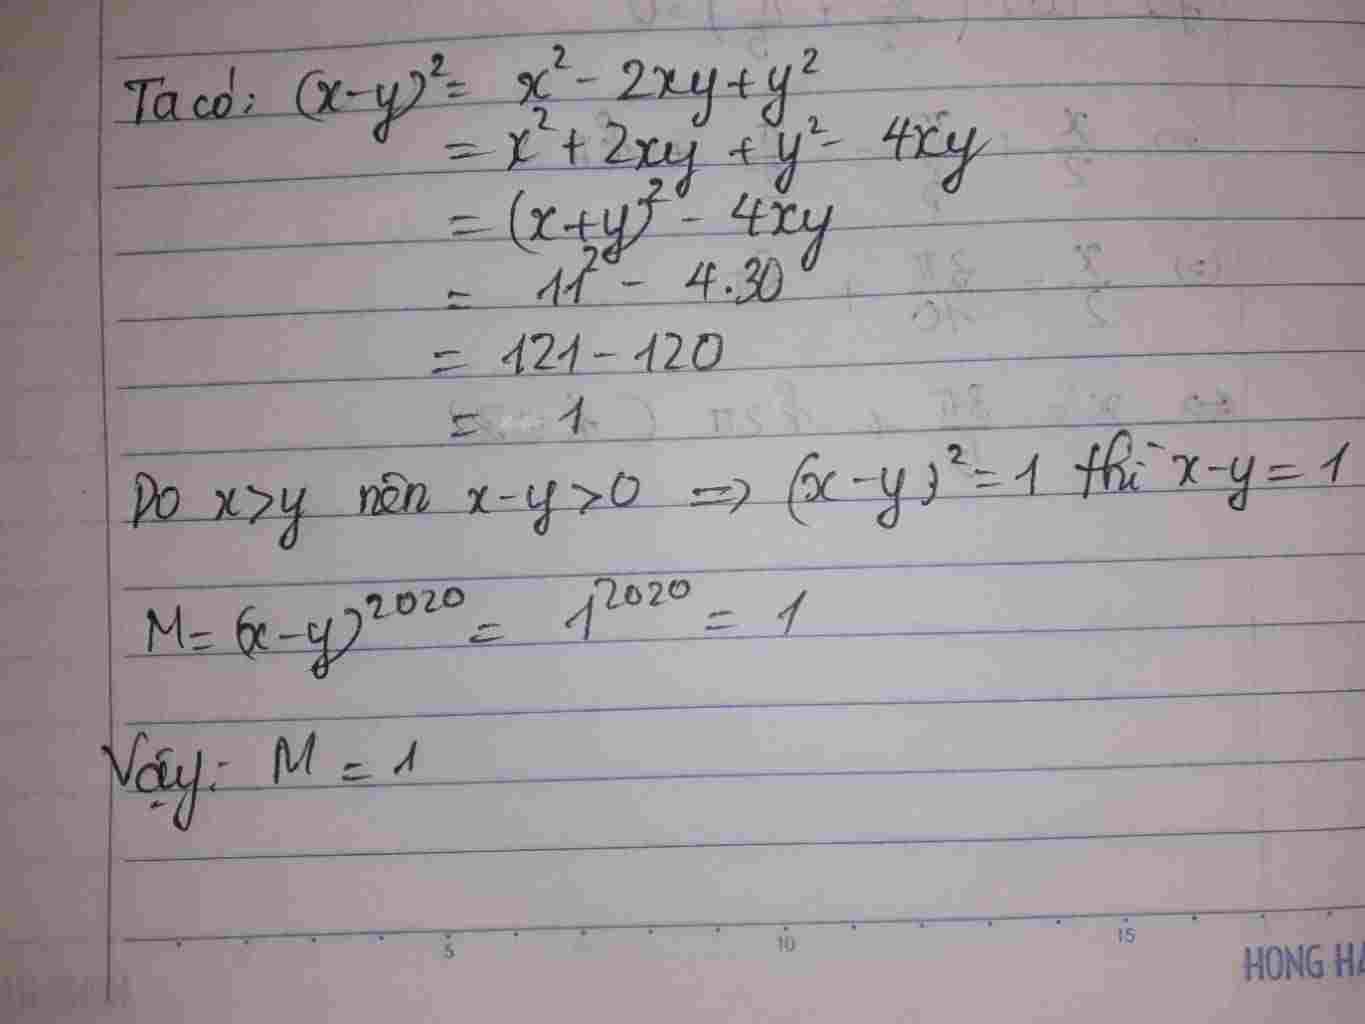 Ta có: (x-y)² = x² - 2xy + y²
= x² + 2xy + y² - 4xy
= (x+y)² - 4xy
= 11² - 4.30
= 121 - 120
= 1
Do x>y nên x-y>0 => (x-y)² = 1 thì x-y = 1
M = (x-y)²⁰²⁰ = 1²⁰²⁰ = 1
Vậy: M = 1
5 10 15
HONG HA